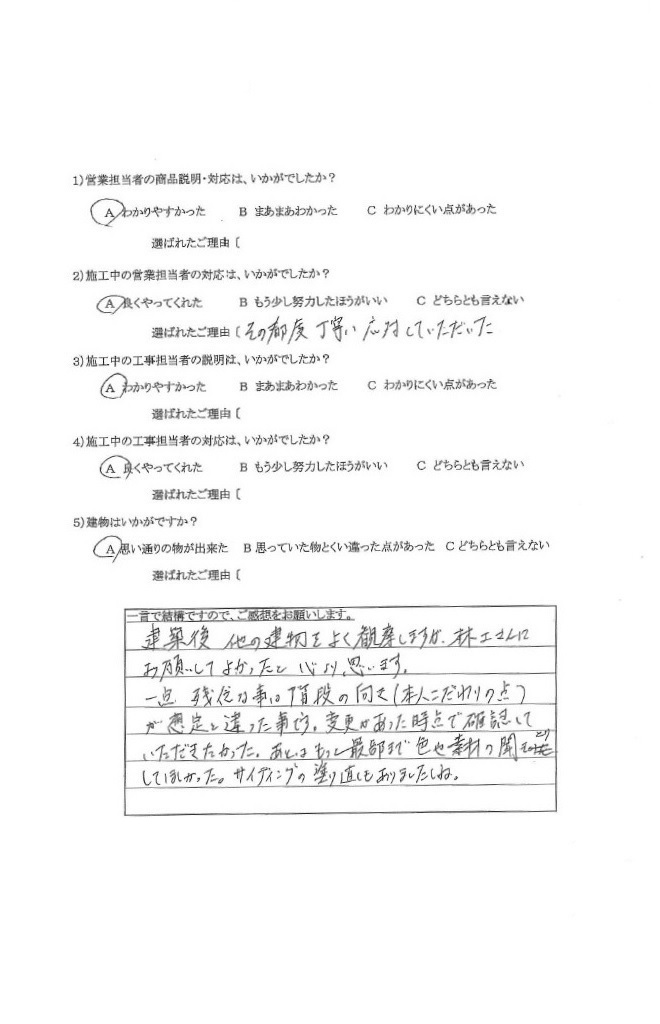 1)営業担当者の商品説明・対応は、いかがでしたか？
A わかりやすかった B まあまあわかった C わかりにくい点があった
選ばれたご理由〔
2)施工中の営業担当者の対応は、いかがでしたか？
A 良くやってくれた B もう少し努力したほうがいい C どちらとも言えない
選ばれたご理由〔その都度 丁寧い 応対していただいた
3)施工中の工事担当者の説明は、いかがでしたか？
A わかりやすかった B まあまあわかった C わかりにくい点があった
選ばれたご理由〔
4)施工中の工事担当者の対応は、いかがでしたか？
A 良くやってくれた B もう少し努力したほうがいい C どちらとも言えない
選ばれたご理由〔
5)建物はいかがですか？
A 思い通りの物が出来た B 思っていた物とくい違った点があった C どちらとも言えない
選ばれたご理由〔
一言で結構ですので、ご感想をお願いします。
建築後 他の建物をよく観察しますが、林工さんに
お願いしてよかったと 心より思います。
一点 残念な事は 階段の向き(本人こだわりの点)
が想定と違った事です。変更があった時点で確認して
いただきたかった。あとはもっと 細部まで 色や素材の聞とり
してほしかった。サイディングの塗り直しもありましたしね。